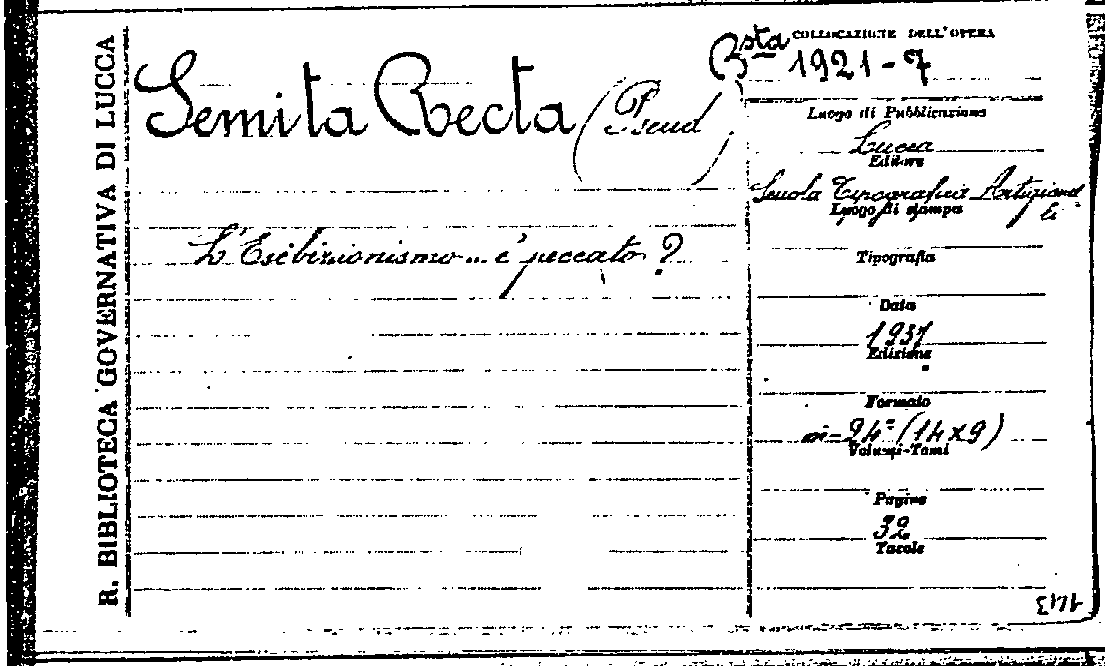 R. BIBLIOTECA GOVERNATIVA DI LUCCA
Semita Recta (Pseud)
L'Esibizionismo... è peccato?
COLLOCAZIONE DELL'OPERA
Bsta 1921-7
Luogo di Pubblicazione
Lucca
Editore
Scuola Tipografica Artigianel
li
Luogo di stampa
Tipografia
Data
1937
Edizione
Formato
in-24° (14x9)
Volumi-Tomi
Pagine
32
Tavole